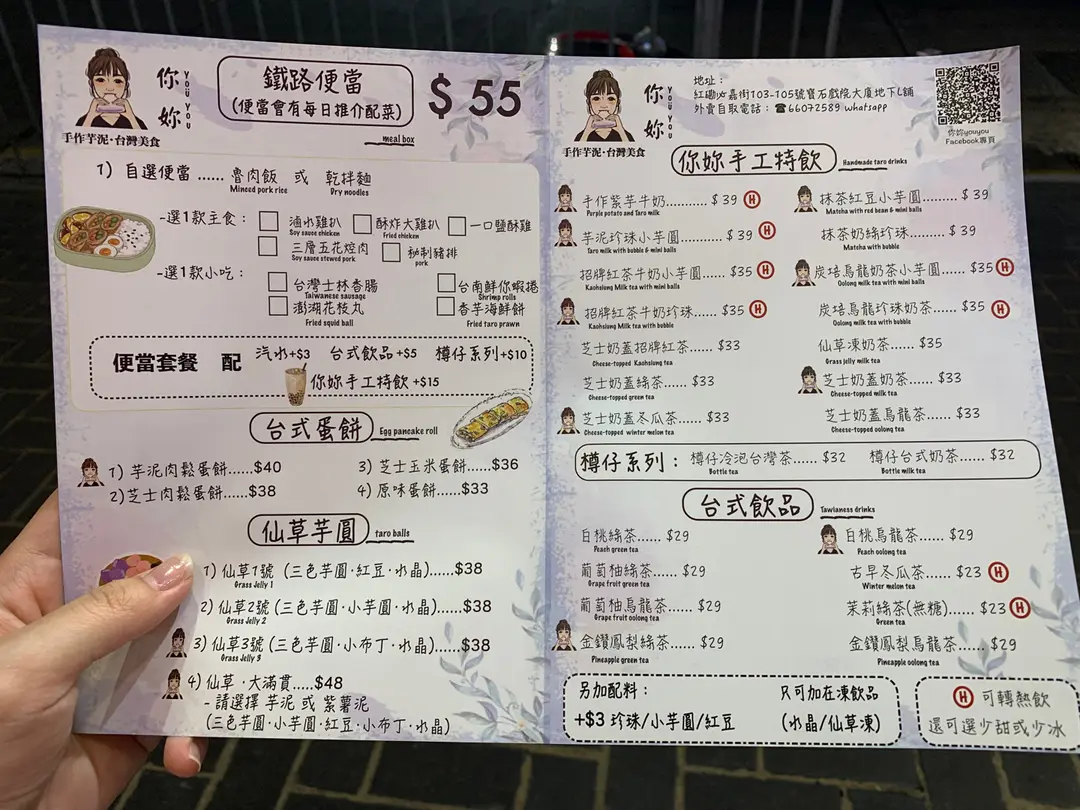 你妳
YOU YOU
手作芋泥·台灣美食
鐵路便當
(便當會有每日推介配菜)
$ 55
meal box
1) 自選便當 ...... 魯肉飯 或 乾拌麵
Minced pork rice Dry noodles
-選1款主食： 滷水雞扒 酥炸大雞扒 一口鹽酥雞
Soy sauce chicken Fried chicken
三層五花焢肉 秘制豬排
Soy sauce stewed pork pork
-選1款小吃： 台灣士林香腸 台南鮮你蝦捲
Taiwanese sausage Shrimp rolls
澎湖花枝丸 香芋海鮮餅
Fried squid ball Fried taro prawn
便當套餐 配 汽水+$3 台式飲品+$5 樽仔系列+$10
你妳手工特飲 +$15
台式蛋餅 Egg pancake roll
1) 芋泥肉鬆蛋餅......$40 3) 芝士玉米蛋餅......$36
2)芝士肉鬆蛋餅......$38 4) 原味蛋餅......$33
仙草芋圓 taro balls
1) 仙草1號 (三色芋圓·紅豆·水晶)......$38
Grass Jelly 1
2) 仙草2號 (三色芋圓·小芋圓·水晶)......$38
Grass Jelly 2
3) 仙草3號 (三色芋圓·小布丁·水晶)......$38
Grass Jelly 3
4) 仙草·大滿貫.....$48
- 請選擇 芋泥 或 紫薯泥
(三色芋圓·小芋圓·紅豆·小布丁·水晶)
你妳
YOU YOU
手作芋泥·台灣美食
地址：
紅磡必嘉街103-105號寶石戲院大廈地下L舖
外賣自取電話：☎66072589 whatsapp
你妳youyou
Facebook專頁
你妳手工特飲 Handmade taro drinks
手作紫芋牛奶...... $ 39 H 抹茶紅豆小芋圓...... $ 39
Purple potato and Taro milk Matcha with red bean & mini balls
芋泥珍珠小芋圓...... $ 39 H 抹茶奶綠珍珠...... $ 39
Taro milk with bubble & mini balls Matcha with bubble
招牌紅茶牛奶小芋圓...... $35 H 炭焙烏龍奶茶小芋圓...... $35 H
Kaohsiung Milk tea with mini balls Oolong milk tea with mini balls
招牌紅茶牛奶珍珠...... $35 H 炭焙烏龍珍珠奶茶...... $35 H
Kaohsiung Milk tea with bubble Oolong milk tea with bubble
芝士奶蓋招牌紅茶...... $33 仙草凍奶茶...... $35
Cheese-topped Kaohsiung tea Grass jelly milk tea
芝士奶蓋綠茶...... $33 芝士奶蓋奶茶...... $33
Cheese-topped green tea Cheese-topped milk tea
芝士奶蓋冬瓜茶...... $33 芝士奶蓋烏龍茶...... $33
Cheese-topped winter melon tea Cheese-topped oolong tea
樽仔系列： 樽仔冷泡台灣茶...... $32 樽仔台式奶茶...... $32
Bottle tea Bottle milk tea
台式飲品 Tawianess drinks
白桃綠茶...... $29 白桃烏龍茶...... $29
Peach green tea Peach oolong tea
葡萄柚綠茶...... $29 古早冬瓜茶...... $23 H
Grape fruit green tea Winter melon tea
葡萄柚烏龍茶...... $29 茉莉綠茶(無糖)...... $23 H
Grape fruit oolong tea Green tea
金鑽鳳梨綠茶...... $29 金鑽鳳梨烏龍茶...... $29
Pineapple green tea Pineapple oolong tea
另加配料： 只可加在凍飲品
+$3 珍珠/小芋圓/紅豆 (水晶/仙草凍)
H 可轉熱飲
還可選少甜或少冰